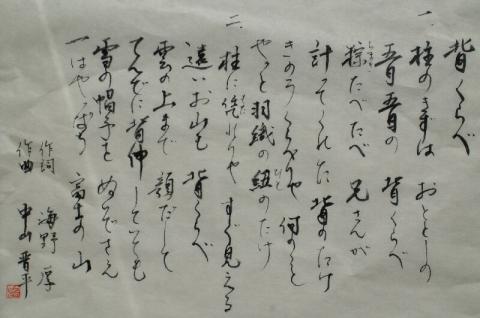 背くらべ
一、柱のきずは おととしの
五月五日の 背くらべ
粽たべたべ 兄さんが
計ってくれた 背のたけ
きのうくらべりゃ 何のこと
やっと羽織の 紐のたけ
二、柱に凭れりゃ すぐ見える
遠いお山も 背くらべ
雲の上まで 顔だして
てんでに背伸していても
雪の帽子を ぬいでさえ
一はやっぱり 富士の山
作詞 海野 厚
作曲 中山晋平